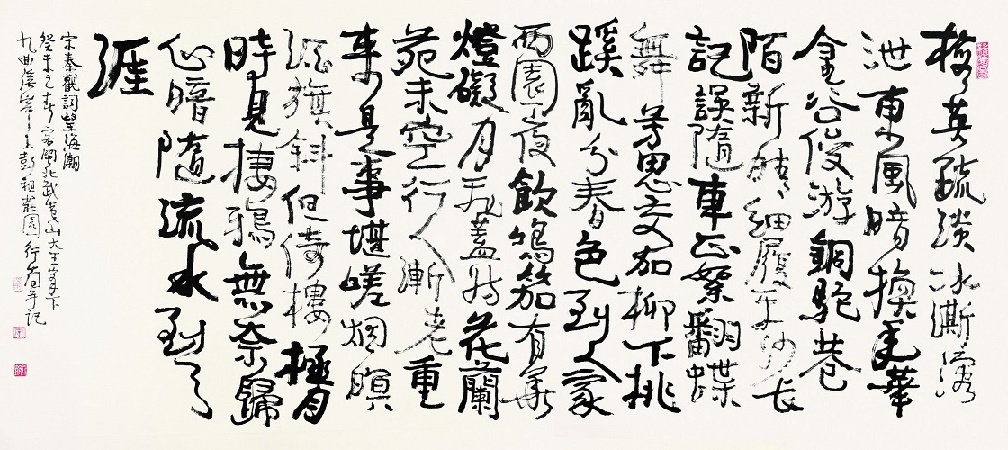 梅英疏淡冰澌溶
泄東風暗換年華
金谷俊游銅駝巷
陌新晴細履平沙長
記誤隨車正絮翻蝶
舞芳思交加柳下桃
蹊亂分春色到人家
西園夜飲鳴笳有華
燈礙月飛蓋妨花蘭
苑未空行人漸老重
來是事堪嗟烟暝
酒旗斜但倚樓極目
時見棲鴉無奈歸
心暗隨流水到天
涯
宋秦觀詞望海潮
癸未之春客閩北武夷山大王峯下
九曲溪畔之彭祖莊園行